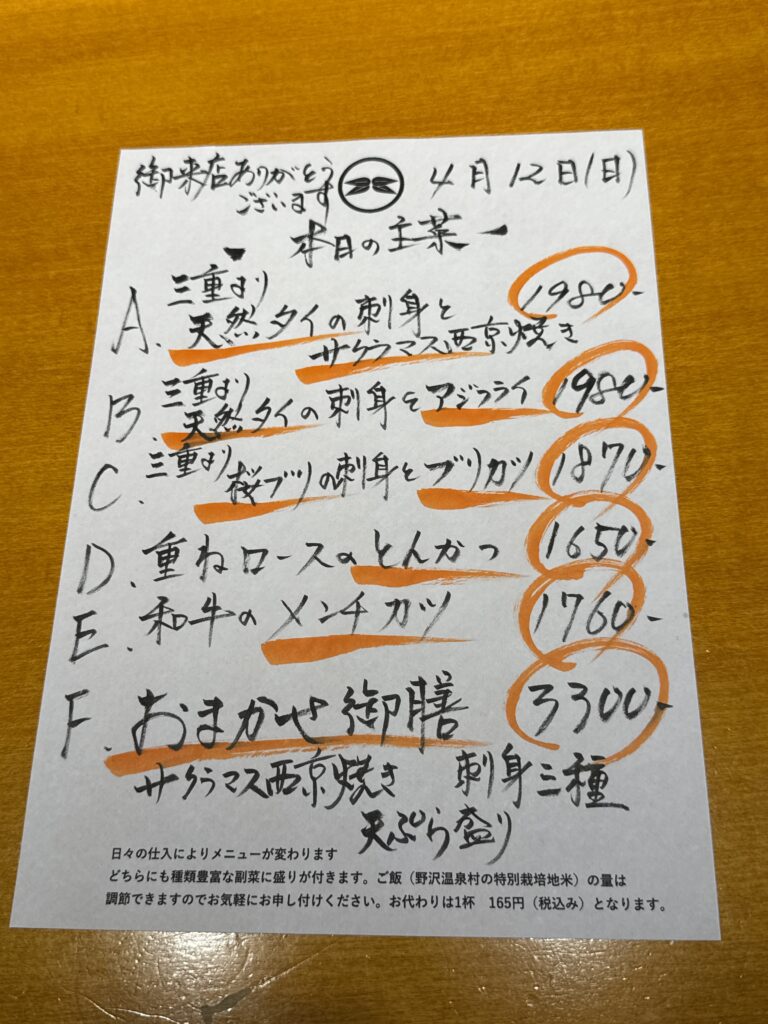 御来店ありがとう
ございます
4月12日(日)
本日の主菜
A. 三重より
天然タイの刺身と
サクラマス西京焼き 1980-
B. 三重より
天然タイの刺身とアジフライ 1980-
C. 三重より
桜ブリの刺身とブリカツ 1870-
D. 重ねロースのとんかつ 1650-
E. 和牛のメンチカツ 1760-
F. おまかせ御膳 3300-
サクラマス西京焼き 刺身三種
天ぷら盛り
日々の仕入によりメニューが変わります
どちらにも種類豊富な副菜に盛りが付きます。ご飯（野沢温泉村の特別栽培地米）の量は
調節できますのでお気軽にお申し付けください。お代わりは1杯 165円（税込み）となります。